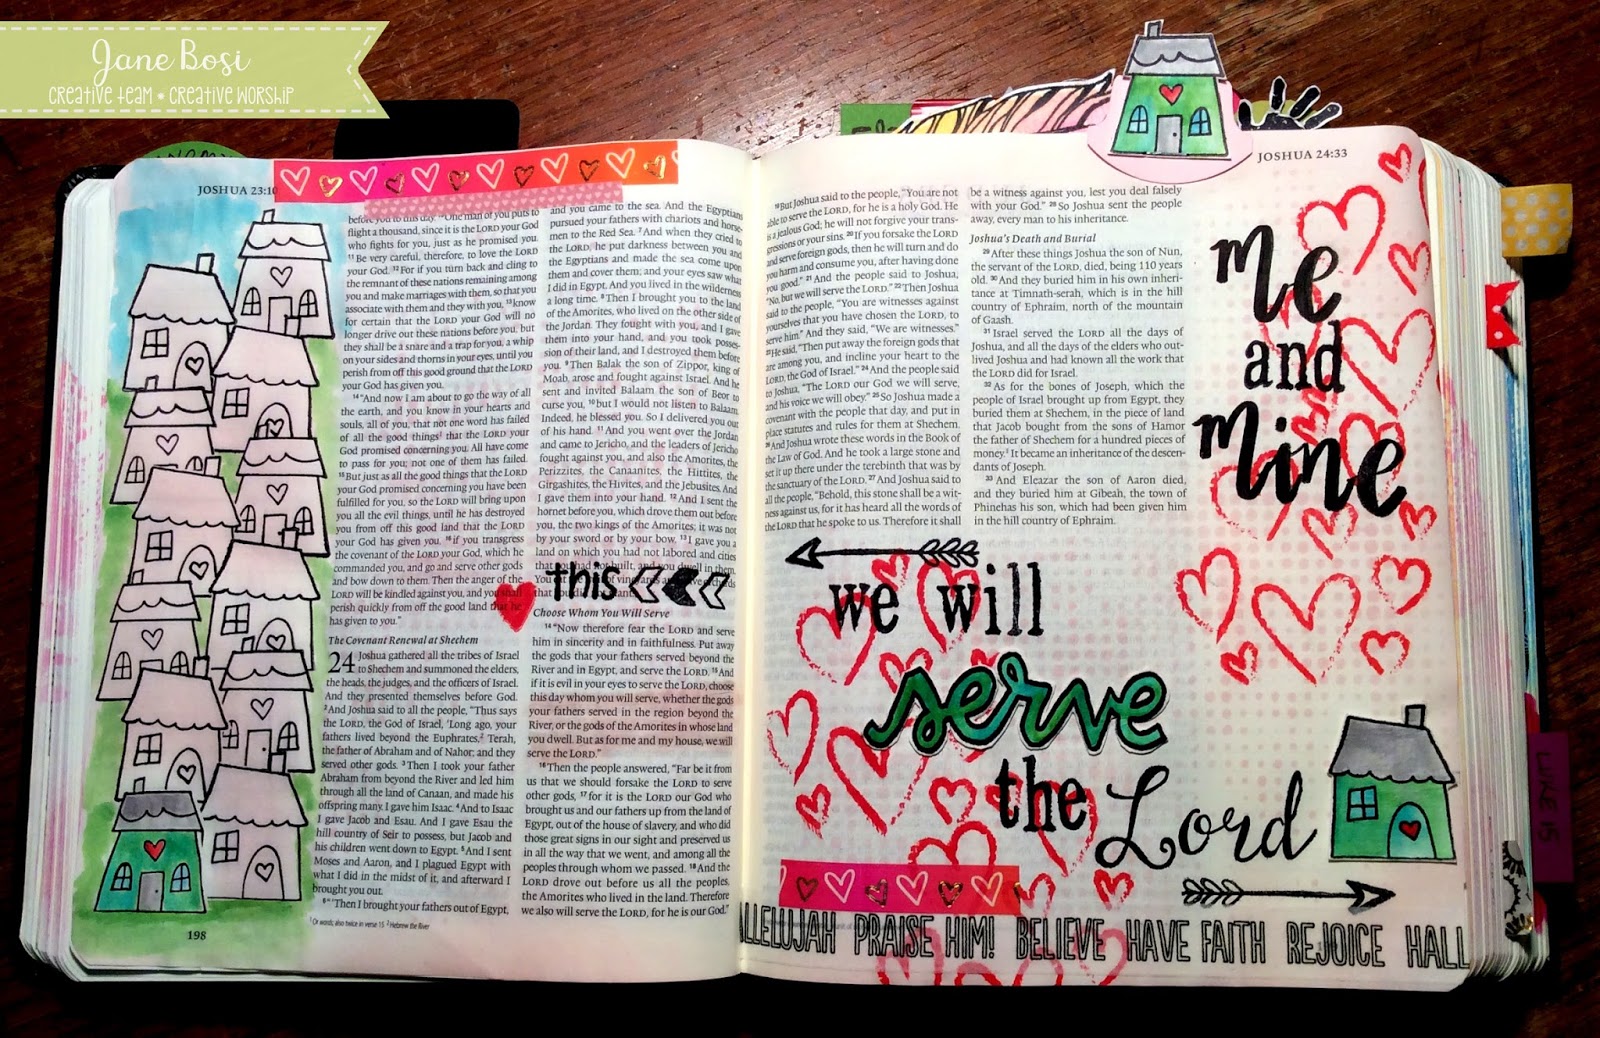 Jane Bosi
creative team • creative worship
JOSHUA 23:10
before you to this day. 10 One man of you puts to
flight a thousand, since it is the LORD your God
who fights for you, just as he promised you.
11 Be very careful, therefore, to love the LORD
your God. 12 For if you turn back and cling to
the remnant of these nations remaining among
you and make marriages with them, so that you
associate with them and they with you, 13 know
for certain that the LORD your God will no
longer drive out these nations before you, but
they shall be a snare and a trap for you, a whip
on your sides and thorns in your eyes, until you
perish from off this good ground that the LORD
your God has given you.
14 "And now I am about to go the way of all
the earth, and you know in your hearts and
souls, all of you, that not one word has failed
of all the good things1 that the LORD your
God promised concerning you. All have come
to pass for you; not one of them has failed.
15 But just as all the good things that the LORD
your God promised concerning you have been
fulfilled for you, so the LORD will bring upon
you all the evil things, until he has destroyed
you from off this good land that the LORD
your God has given you, 16 if you transgress
the covenant of the LORD your God, which he
commanded you, and go and serve other gods
and bow down to them. Then the anger of the
LORD will be kindled against you, and you shall
perish quickly from off the good land that he
has given to you."
The Covenant Renewal at Shechem
24 Joshua gathered all the tribes of Israel
to Shechem and summoned the elders,
the heads, the judges, and the officers of Israel.
And they presented themselves before God.
2 And Joshua said to all the people, "Thus says
the LORD, the God of Israel, 'Long ago, your
fathers lived beyond the Euphrates,2 Terah,
the father of Abraham and of Nahor; and they
served other gods. 3 Then I took your father
Abraham from beyond the River and led him
through all the land of Canaan, and made his
offspring many. I gave him Isaac. 4 And to Isaac
I gave Jacob and Esau. And I gave Esau the
hill country of Seir to possess, but Jacob and
his children went down to Egypt. 5 And I sent
Moses and Aaron, and I plagued Egypt with
what I did in the midst of it, and afterward I
brought you out.
6 "'Then I brought your fathers out of Egypt,
1 Or words; also twice in verse 15 2 Hebrew the River
198
and you came to the sea. And the Egyptians
pursued your fathers with chariots and horse-
men to the Red Sea. 7 And when they cried to
the LORD, he put darkness between you and
the Egyptians and made the sea come upon
them and cover them; and your eyes saw what
I did in Egypt. And you lived in the wilderness
a long time. 8 Then I brought you to the land
of the Amorites, who lived on the other side of
the Jordan. They fought with you, and I gave
them into your hand, and you took posses-
sion of their land, and I destroyed them before
you. 9 Then Balak the son of Zippor, king of
Moab, arose and fought against Israel. And he
sent and invited Balaam the son of Beor to
curse you, 10 but I would not listen to Balaam.
Indeed, he blessed you. So I delivered you out
of his hand. 11 And you went over the Jordan
and came to Jericho, and the leaders of Jericho
fought against you, and also the Amorites, the
Perizzites, the Canaanites, the Hittites, the
Girgashites, the Hivites, and the Jebusites. And
I gave them into your hand. 12 And I sent the
hornet before you, which drove them out before
you, the two kings of the Amorites; it was not
by your sword or by your bow. 13 I gave you a
land on which you had not labored and cities
that you had not built, and you dwell in them.
this
Choose Whom You Will Serve
14 "Now therefore fear the LORD and serve
him in sincerity and in faithfulness. Put away
the gods that your fathers served beyond the
River and in Egypt, and serve the LORD. 15 And
if it is evil in your eyes to serve the LORD, choose
this day whom you will serve, whether the gods
your fathers served in the region beyond the
River, or the gods of the Amorites in whose land
you dwell. But as for me and my house, we will
serve the LORD."
16 Then the people answered, "Far be it from
us that we should forsake the LORD to serve
other gods, 17 for it is the LORD our God who
brought us and our fathers up from the land of
Egypt, out of the house of slavery, and who did
those great signs in our sight and preserved us
in all the way that we went, and among all the
peoples through whom we passed. 18 And the
LORD drove out before us all the peoples,
the Amorites who lived in the land. Therefore
we also will serve the LORD, for he is our God."
JOSHUA 24:33
19 But Joshua said to the people, "You are not
able to serve the LORD, for he is a holy God. He
is a jealous God; he will not forgive your trans-
gressions or your sins. 20 If you forsake the LORD
and serve foreign gods, then he will turn and do
you harm and consume you, after having done
you good." 21 And the people said to Joshua,
"No, but we will serve the LORD." 22 Then Joshua
said to the people, "You are witnesses against
yourselves that you have chosen the LORD, to
serve him." And they said, "We are witnesses."
23 He said, "Then put away the foreign gods that
are among you, and incline your heart to the
LORD, the God of Israel." 24 And the people said
to Joshua, "The LORD our God we will serve,
and his voice we will obey." 25 So Joshua made a
covenant with the people that day, and put in
place statutes and rules for them at Shechem.
26 And Joshua wrote these words in the Book of
the Law of God. And he took a large stone and
set it up there under the terebinth that was by
the sanctuary of the LORD. 27 And Joshua said to
all the people, "Behold, this stone shall be a wit-
ness against us, for it has heard all the words of
the LORD that he spoke to us. Therefore it shall
be a witness against you, lest you deal falsely
with your God." 28 So Joshua sent the people
away, every man to his inheritance.
Joshua's Death and Burial
29 After these things Joshua the son of Nun,
the servant of the LORD, died, being 110 years
old. 30 And they buried him in his own inher-
itance at Timnath-serah, which is in the hill
country of Ephraim, north of the mountain
of Gaash.
31 Israel served the LORD all the days of
Joshua, and all the days of the elders who out-
lived Joshua and had known all the work that
the LORD did for Israel.
32 As for the bones of Joseph, which the
people of Israel brought up from Egypt, they
buried them at Shechem, in the piece of land
that Jacob bought from the sons of Hamor
the father of Shechem for a hundred pieces of
money.1 It became an inheritance of the descen-
dants of Joseph.
33 And Eleazar the son of Aaron died,
and they buried him at Gibeah, the town of
Phinehas his son, which had been given him
in the hill country of Ephraim.
me
and
mine
we will
serve
the Lord
LUKE 15
ALLELUJAH PRAISE HIM! BELIEVE HAVE FAITH REJOICE HALL